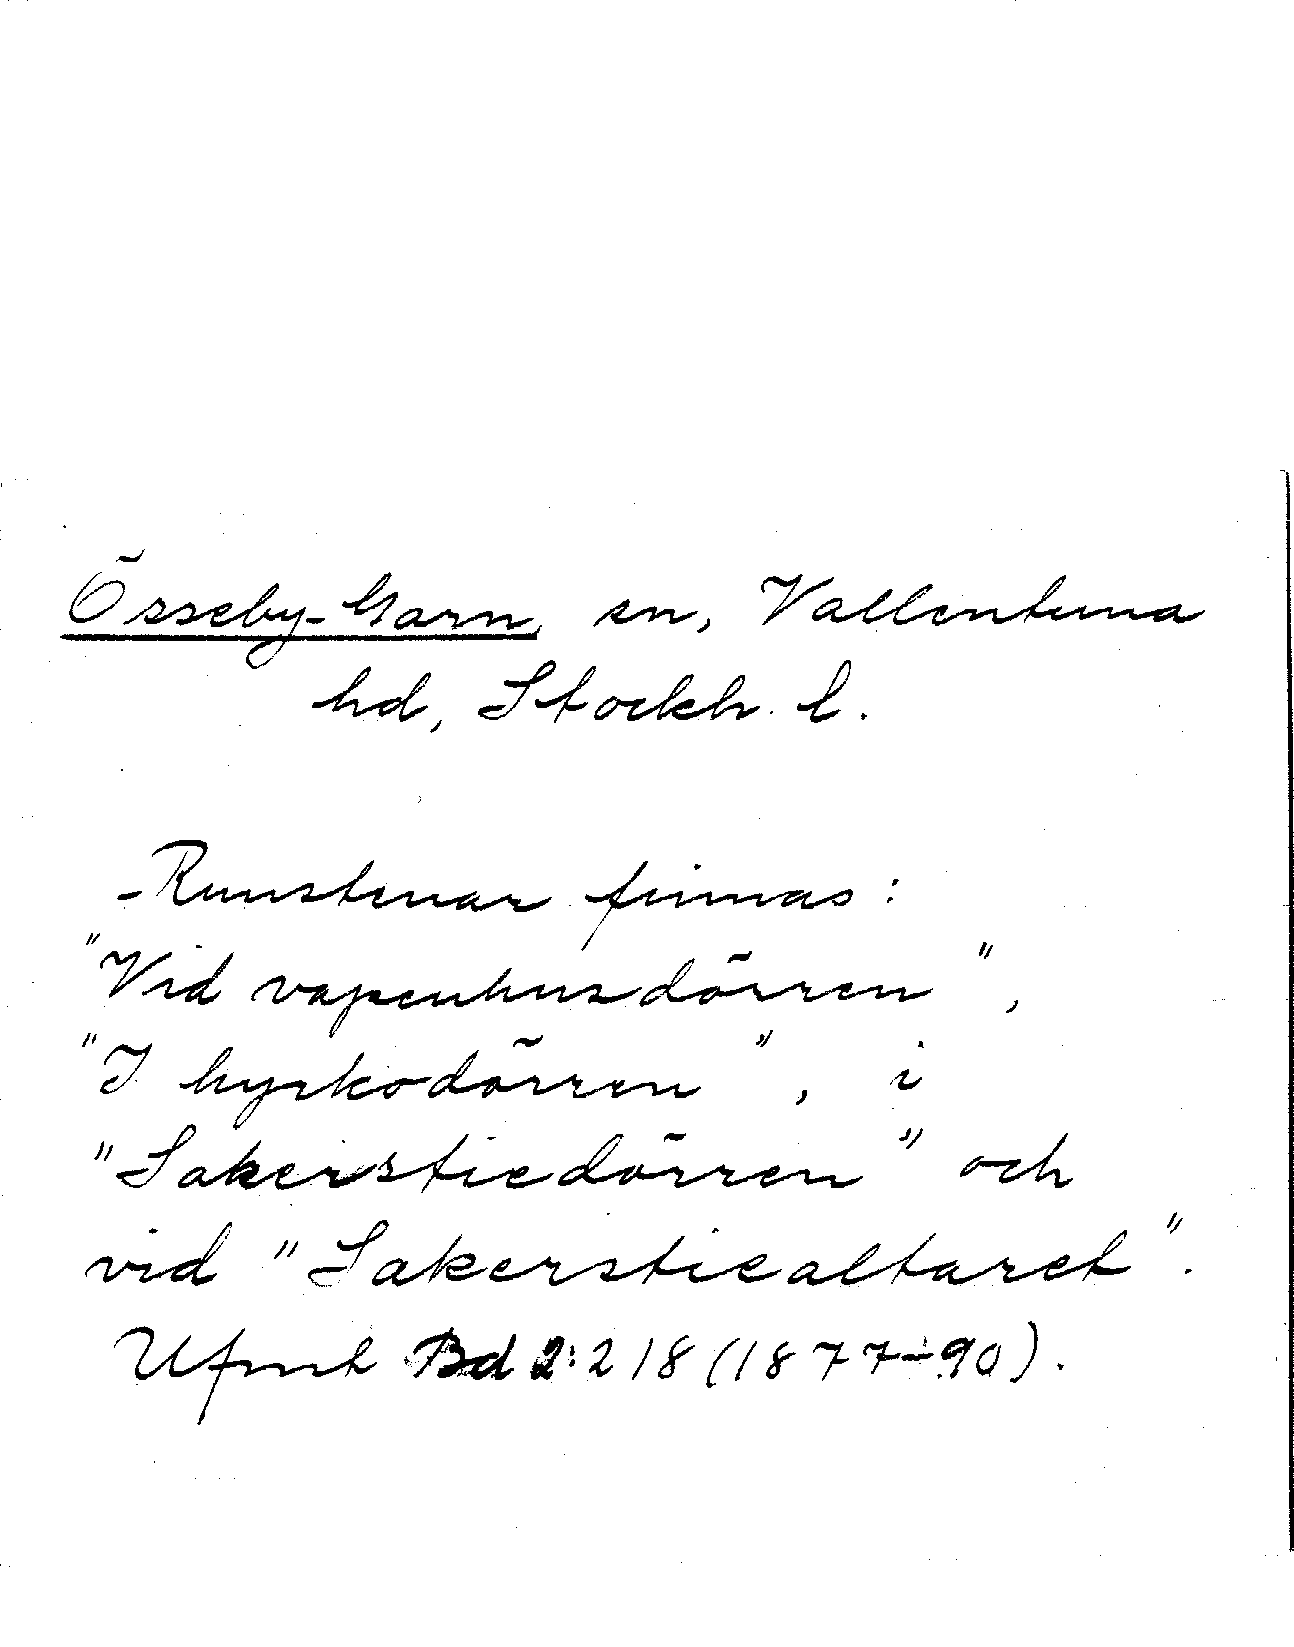 Össeby-Garn, sn, Vallentuna
hd, Stockh. l.
-Runstenar finnas:
"Vid vapenhusdörren",
"I kyrkodörren", i
"Sakerstiedörren" och
vid "Sakerstiealtaret".
Ufmt Bd 2:218 (1877-90).